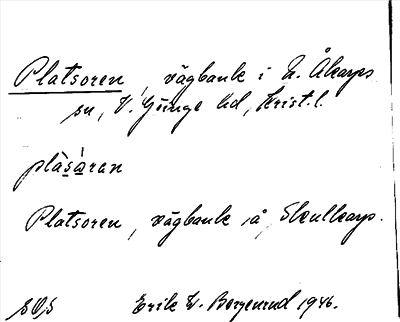 Platsoren, vägbank i N. Åkarps
sn, V. Göinge hd, Krist. l.
plàsáran
Platsoren, vägbank å Skullcarp.
SOS Erik W. Borgenrud 1946.